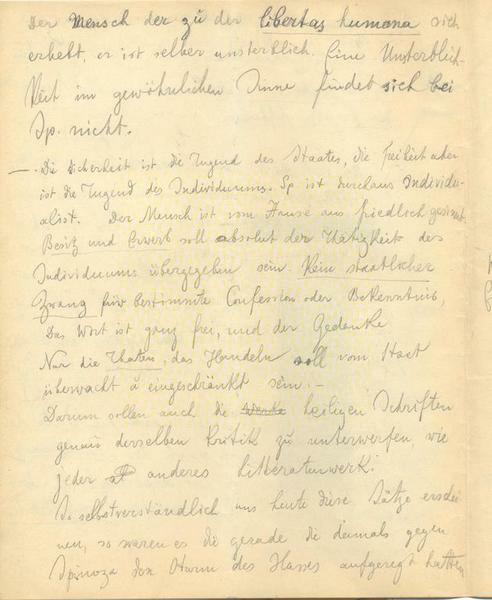 Der Mensch der zu der libertas humana sich
erhebt, er ist selber unsterblich. Eine Unsterblich-
keit im gewöhnlichen Sinne findet sich bei
Sp. nicht.
— Die Sicherheit ist die Tugend des Staates, die Freiheit aber
ist die Tugend des Individuums. Sp ist durchaus Individu-
alist. Der Mensch ist vom Hause aus friedlich gesinnt.
Besitz und Erwerb soll absolut der Thätigkeit des
Individuums übergegeben sein. Kein staatlicher
Zwang für bestimmte Confession oder Bekenntnis,
Das Wort ist ganz frei, und der Gedanke
Nur die Thaten, das Handeln soll vom Staat
überwacht u eingeschränkt sein. –
Darum sollen auch die Werke heiligen Schriften
genau derselben Kritik zu unterwerfen, wie
jeder anderes Litteraturwerk.
So selbstverständlich uns heute diese Sätze erschei
nen, so waren es die gerade die damals gegen
Spinoza den Sturm des Hasses aufgeregt hatten